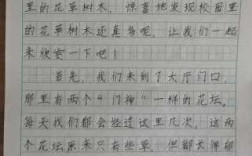 里的花草树木，惊喜地发现校园里
的花草树木还真多呢，让我们一起
来欣赏一下吧！
首先，我们来到了大厅门口，
那里有两个“门神”一样的花坛。
每天我们都会经过这里几次，这两
个花坛原来只有些草，但都长得郁